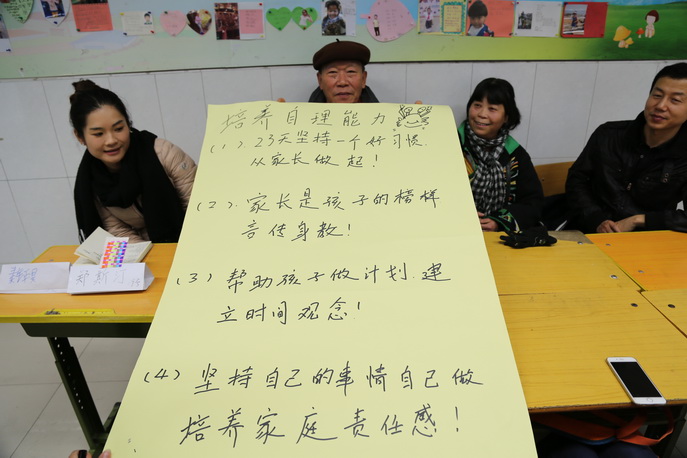 培养自理能力
(1).23天坚持一个好习惯.
从家长做起!
(2).家长是孩子的榜样
言传身教!
(3)帮助孩子做计划.建
立时间观念!
(4)坚持自己的事情自己做
培养家庭责任感!